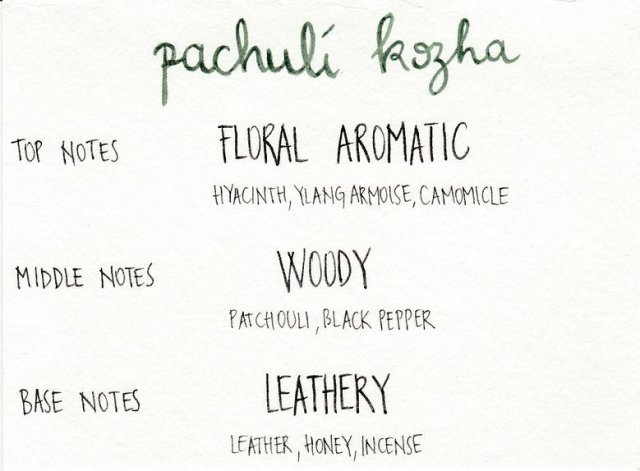 pachulí kozha
TOP NOTES FLORAL AROMATIC
HYACINTH, YLANG ARMOISE, CAMOMICLE
MIDDLE NOTES WOODY
PATCHOULI, BLACK PEPPER
BASE NOTES LEATHERY
LEATHER, HONEY, INCENSE